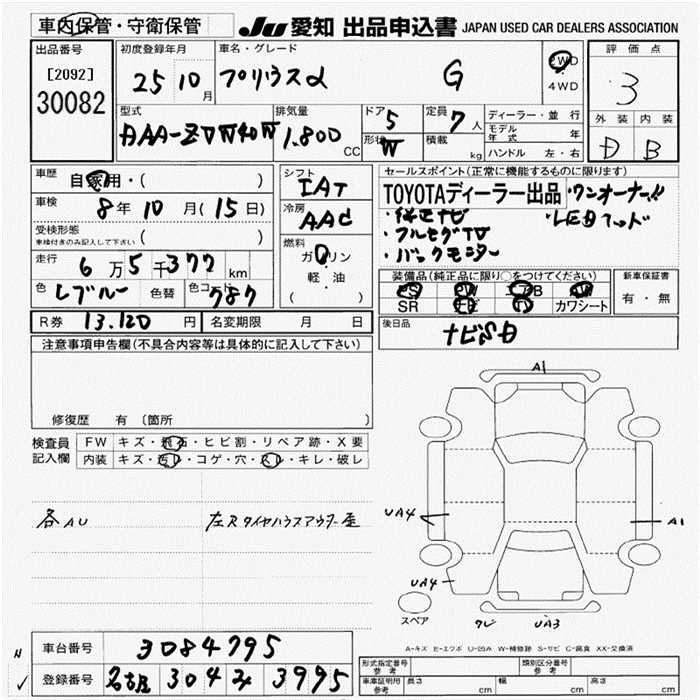 車内保管・守衛保管
JU 愛知 出品申込書 JAPAN USED CAR DEALERS ASSOCIATION
出品番号
[2092]
30082
初度登録年月
25 10 月
車名・グレード
プリウスα G
2WD
4WD
評価点
3
外装 内装
D B
型式
DAA-ZVW40W
排気量
1.800 CC
ドア 5
形状 W
定員 7 人
積載 kg
ディーラー・並行
モデル年式 年
ハンドル 左・右
車歴
自家用・( )
車検
8年 10月(15日)
受検形態
車検付きのみ記入して下さい ( )
走行
6万5千377 km
色
Lブルー 色替 色コード 787
シフト
IAT
冷房
AAC
燃料
ガソリン
軽・油
( )
セールスポイント(正常に機能するものに限ります)
TOYOTAディーラー出品 ・ワンオーナー!!
・純正ナビ ・LEDヘッド
・フルセグTV
・バックモニター
装備品(純正品に限り○をつけてください)
PS PW AB AW
SR ナビ TV カワシート
新車保証書
有・無
R券 13.120 円 名変期限 月 日
後日品
ナビSD
注意事項申告欄(不具合内容等は具体的に記入して下さい)
修復歴 有 〔箇所 〕
検査員記入欄
FW キズ・飛石・ヒビ割・リペア跡・X要
内装 キズ・汚レ・コゲ・穴・スレ・キレ・破レ
各AU
左Rタイヤハウスアウター歪
A1
UA4
A1
UA4
スペア
ワレ UA3
A-キズ E-エクボ U-凹み W-補修跡 S-サビ C-腐食 XX-交換済
車台番号 3084795
登録番号 名古屋 304 3995
形式指定番号 参考
類別区分番号 参考
車庫証明用 参考
長さ cm
幅 cm
高さ cm